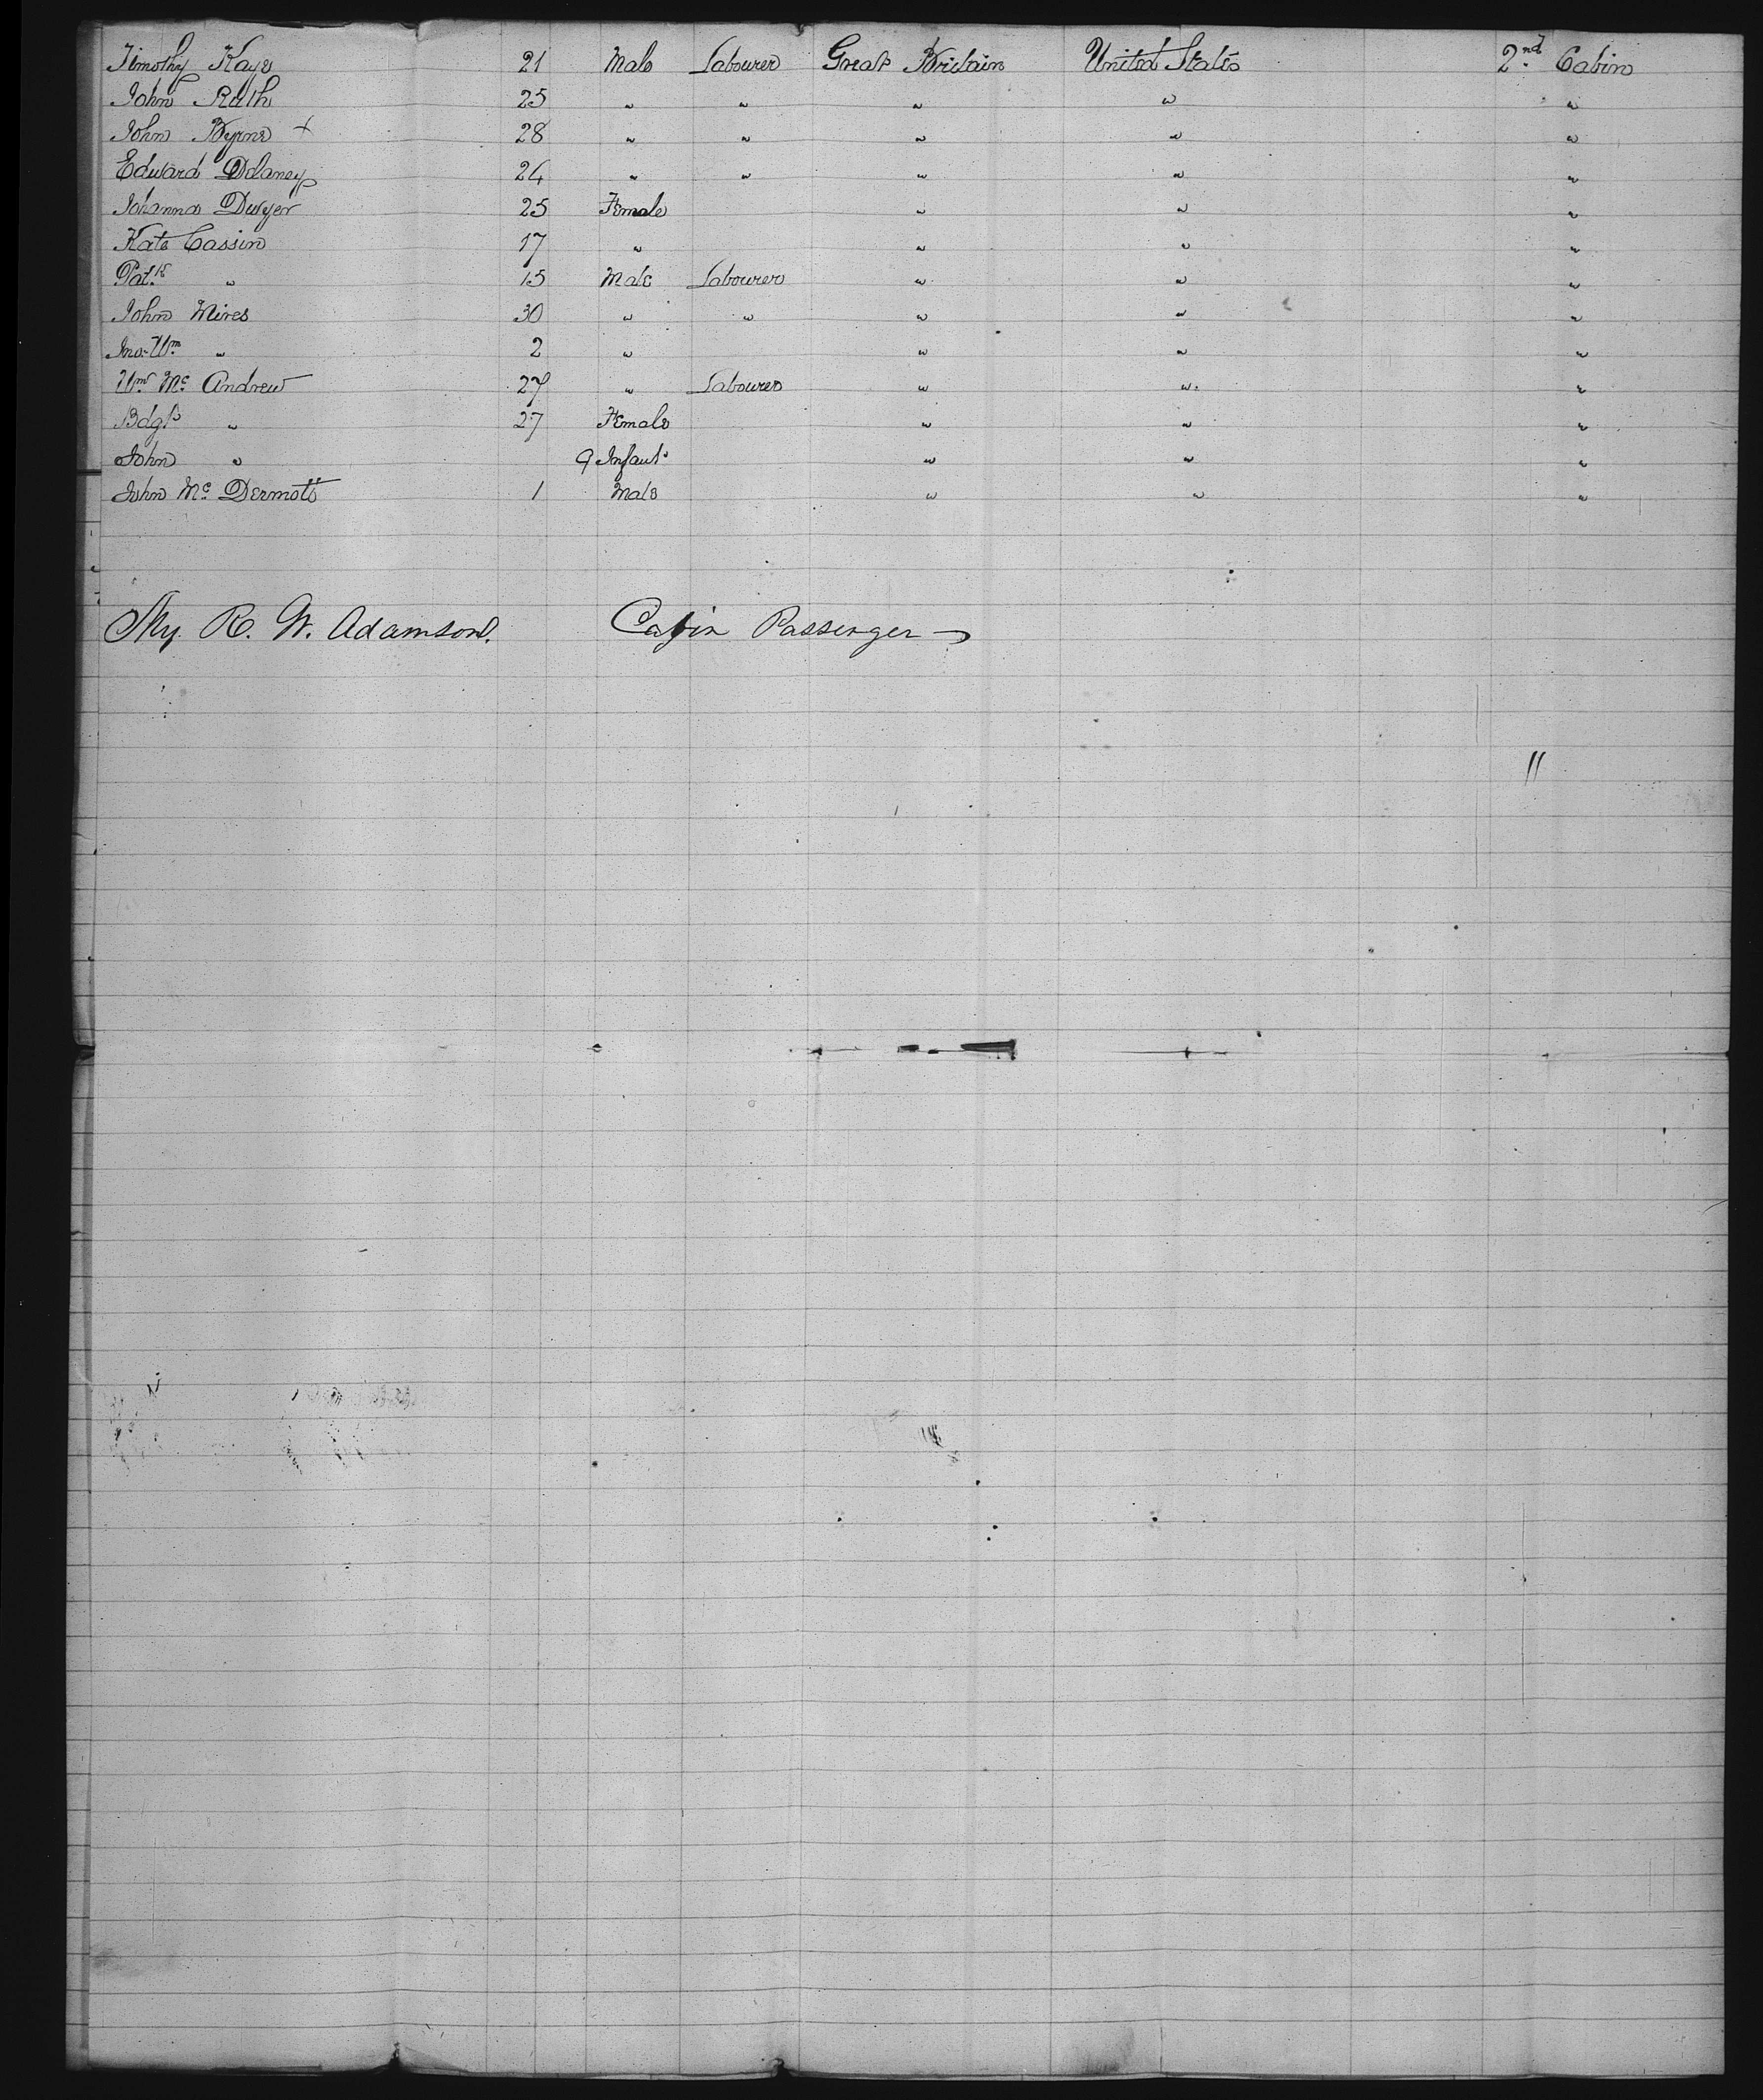 Timothy Kaye 21 Male Labourer Great Britain United States 2nd Cabin
John Rath 25 " " " " "
John Byrne + 28 " " " " "
Edward Delaney 24 " " " " "
Johanna Dwyer 25 Female " " "
Kate Cassin 17 " " " "
Patk " 15 Male Labourer " " "
John Mires 30 " " " " "
Jno. Wm " 2 " " " "
Wm Mc Andrew 27 " Labourer " " "
Bdgt " 27 Female " " "
John " 9 Infant " " "
John Mc Dermott 1 Male " " "
R. W. Adamson. Cabin Passenger
"